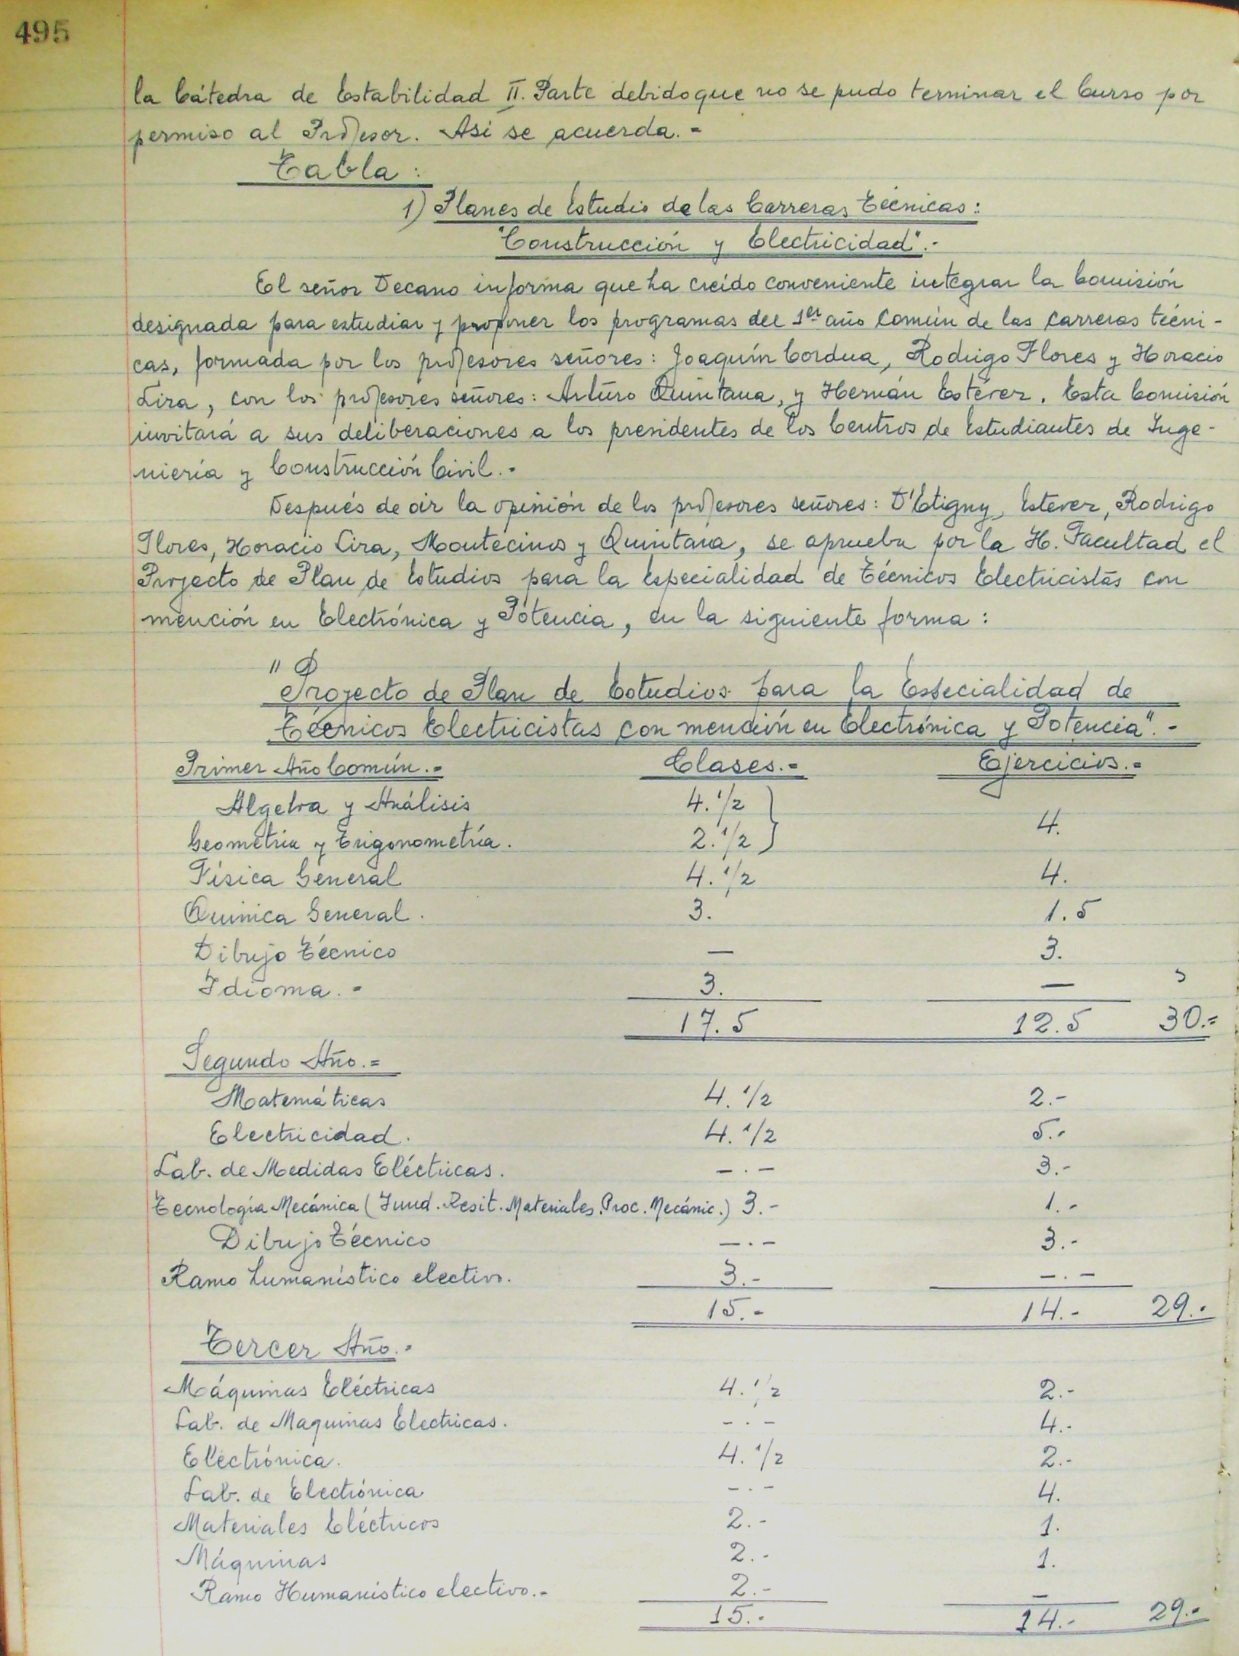 495
la Cátedra de Estabilidad II. Parte debido que no se pudo terminar el Curso por
permiso al Profesor. Así se acuerda.-
Tabla:
1) Planes de Estudio de las Carreras Técnicas:
"Construcción y Electricidad".-
El señor Decano informa que ha creído conveniente integrar la Comisión
designada para estudiar y proponer los programas del 1er año Común de las carreras técni-
cas, formada por los profesores señores: Joaquín Cordua, Rodrigo Flores y Horacio
Lira, con los profesores señores: Arturo Quintana, y Hernán Estévez. Esta Comisión
invitará a sus deliberaciones a los presidentes de los Centros de Estudiantes de Inge-
niería y Construcción Civil.-
Después de oir la opinión de los profesores señores: D'Etigny, Estevez, Rodrigo
Flores, Horacio Lira, Montecinos y Quintana, se aprueba por la H. Facultad el
Proyecto de Plan de Estudios para la Especialidad de Técnicos Electricistas con
mención en Electrónica y Potencia, en la siguiente forma:
"Proyecto de Plan de Estudios para la Especialidad de
Técnicos Electricistas con mención en Electrónica y Potencia".-
Primer Año Común.- Clases.- Ejercicios.-
Algebra y Análisis 4.1/2
Geometría y Trigonometría. 2.1/2 } 4.
Física General 4.1/2 4.
Química General. 3. 1.5
Dibujo Técnico — 3.
Idioma.- 3. —
17.5 12.5 30.-
Segundo Año.-
Matemáticas 4.1/2 2.-
Electricidad. 4.1/2 5.-
Lab. de Medidas Eléctricas. -.- 3.-
Tecnología Mecánica (Fund. Resit. Materiales. Proc. Mecánic.) 3.- 1.-
Dibujo Técnico -.- 3.-
Ramo humanístico electivo. 3.- -.-
15.- 14.- 29.-
Tercer Año.-
Máquinas Eléctricas 4.1/2 2.-
Lab. de Maquinas Electricas. -.- 4.-
Electrónica. 4.1/2 2.-
Lab. de Electrónica -.- 4.
Materiales Eléctricos 2.- 1.
Máquinas 2.- 1.
Ramo Humanístico electivo.- 2.- —
15.- 14.- 29.-